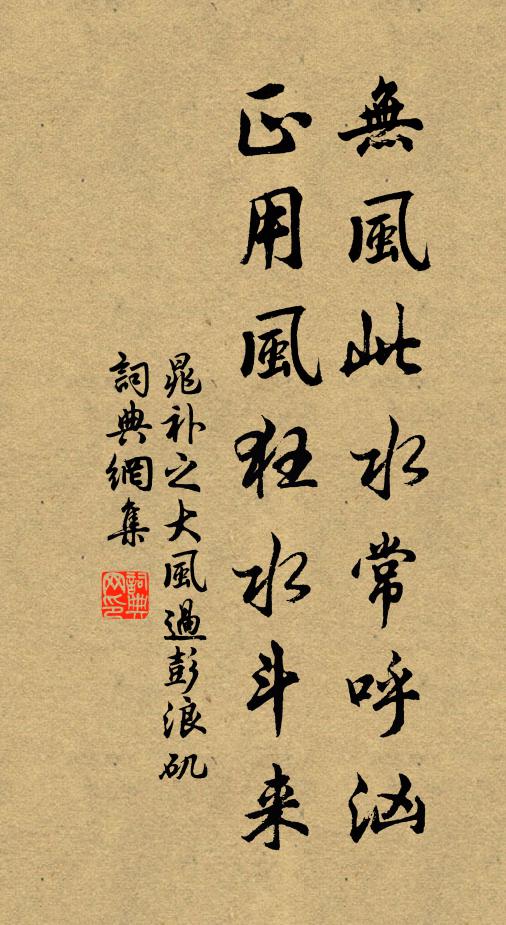 無風此水常呼洶
正用風狂水斗来
晁补之大風過彭浪矶
詞典網集
詞典網印